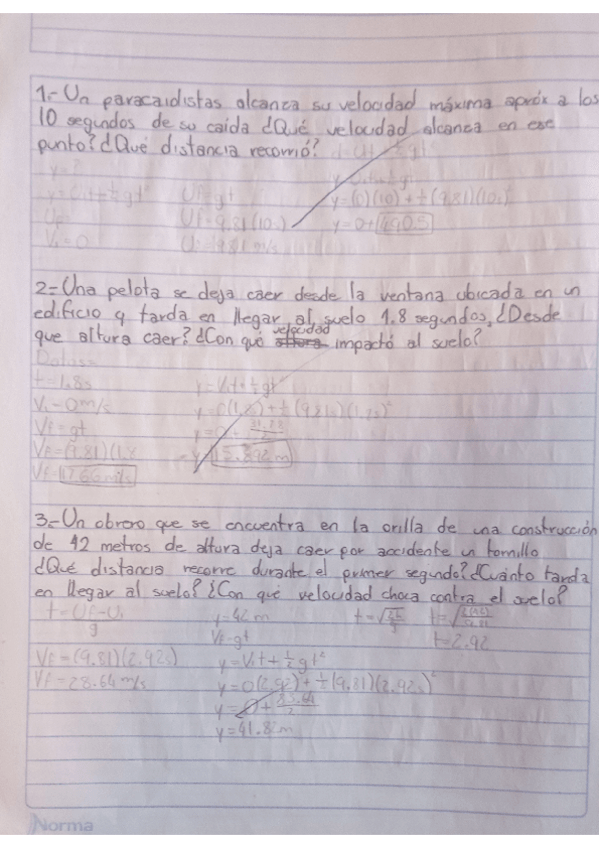 1.- Un paracaidistas alcanza su velocidad máxima apróx a los
10 segundos de su caida ¿Qué velocidad alcanza en ese
punto? ¿Qué distancia recorrió?
y=?
Uf=gt
Uf=9.81(10s)
Vi=0
y=(0)(10)+½(9.81)(10s)
y=0+490.5
2=Una pelota se deja caer desde la ventana ubicada en un
edificio q tarda en llegar al suelo 1.8 segundos, ¿Desde
que altura caer? ¿Con qué velocidad impactó al suelo?
Datos=
t=1.8s
Vi=0m/s
Vf=gt
Vf=(9.81)(1.8
Vf=17.66m/s
y=Vit+½gt²
3=Un obrero que se encuentra en la orilla de una construcción
de 42 metros de altura deja caer por accidente un tornillo
¿Qué distancia recorre durante el primer segundo? ¿Cuánto tarda
en llegar al suelo? ¿Con qué velocidad choca contra el suelo?
y=42m
Vf=gt
t=2.92
Vf=(9.81)(2.92s)
Vf=28.64m/s
y=Vit+½gt²
y=0(2.92)+½(9.81)(2.92s)²
y=0+83.64/2
y=41.82m
Norma